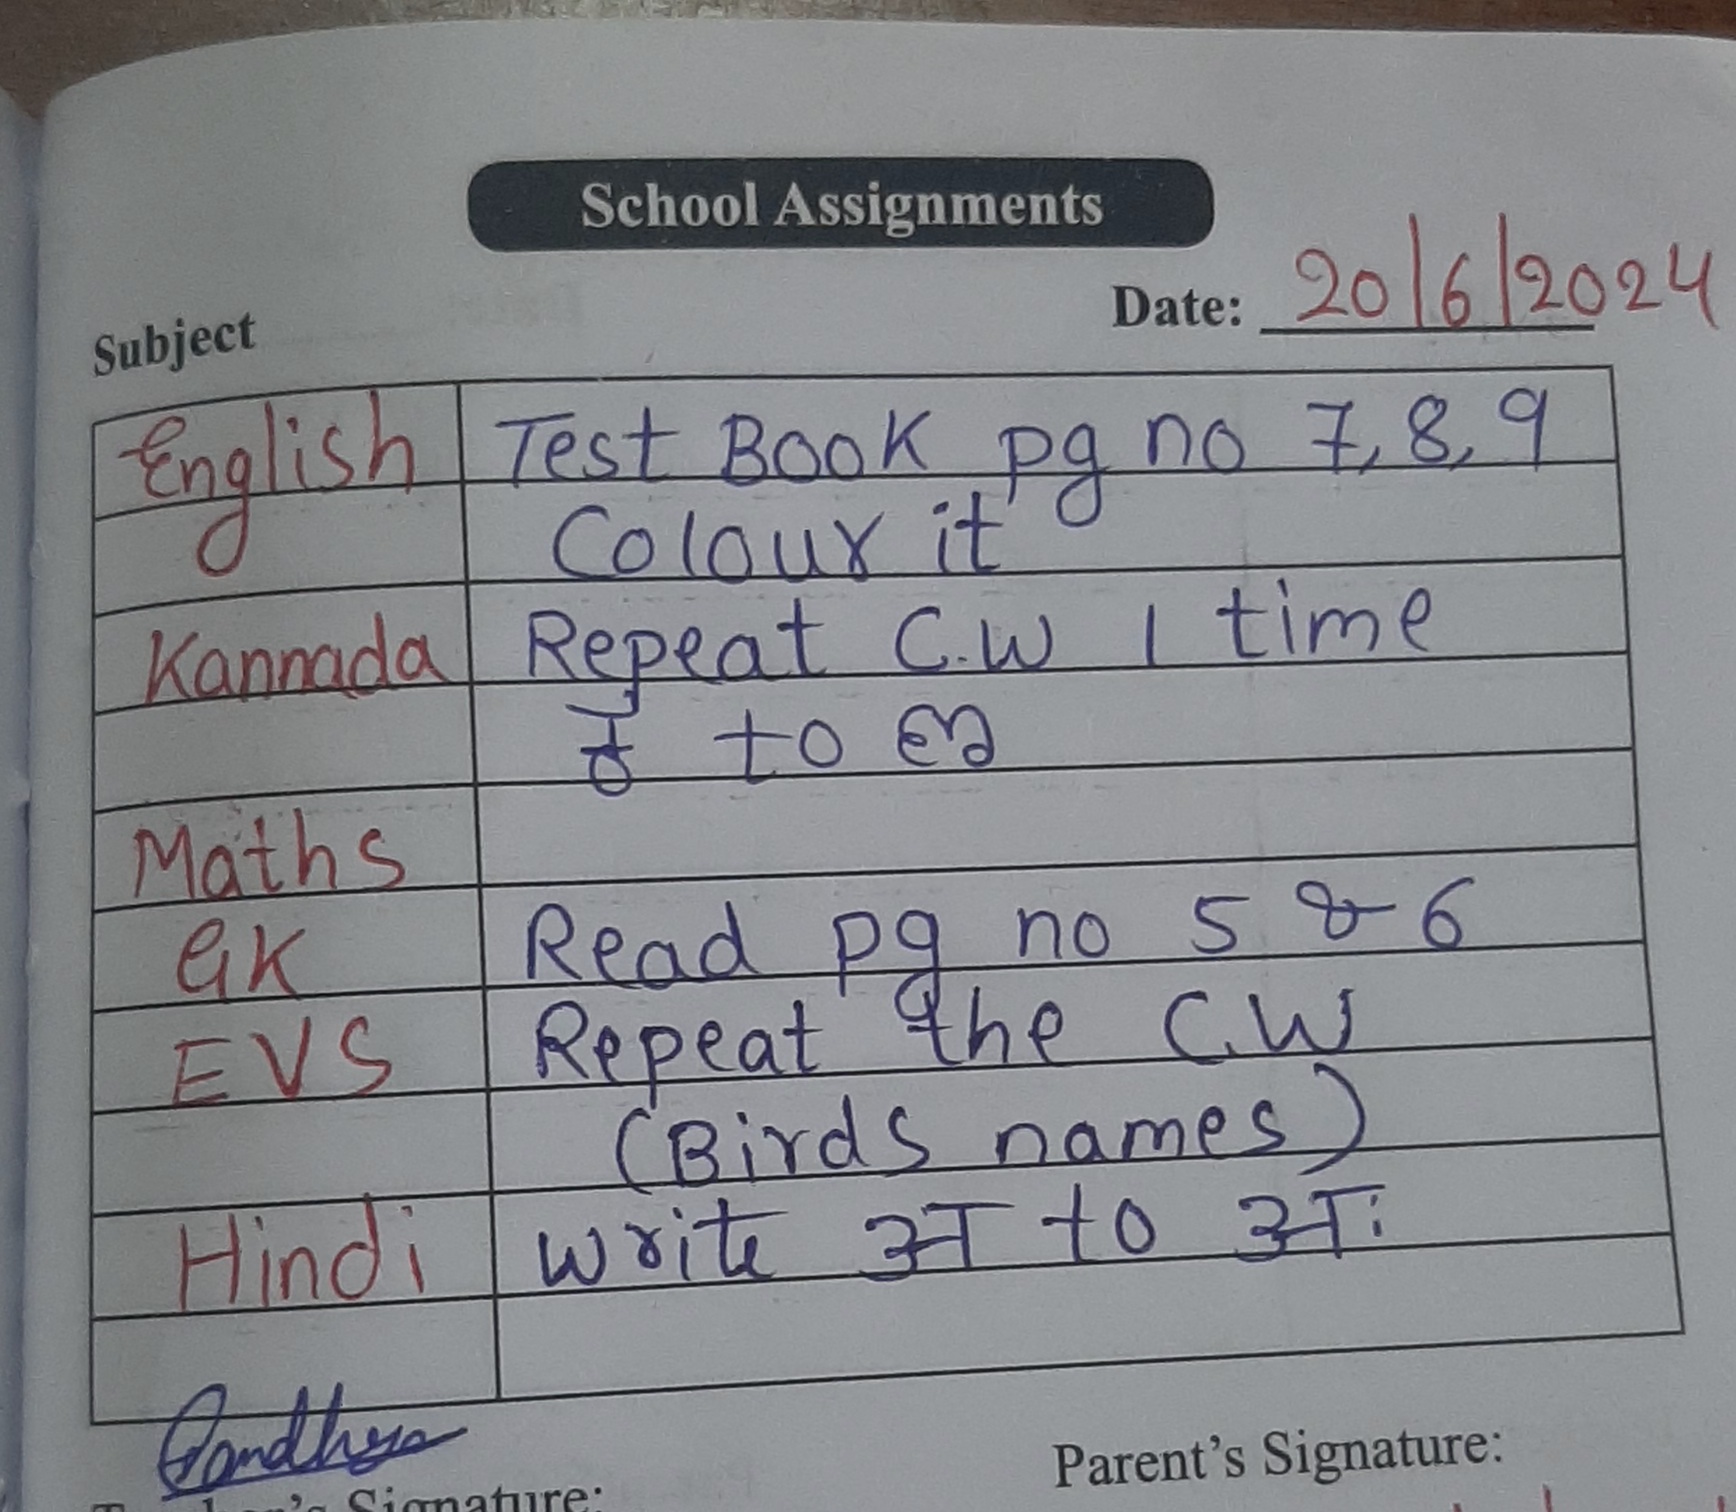 School Assignments
Date: 20/6/2024
Subject
English Test Book pg no 7, 8, 9
Colour it
Kannada Repeat C.W 1 time
to
Maths
GK Read pg no 5 & 6
EVS Repeat the C.W
(Birds names)
Hindi Write अ to अः
Parent's Signature:
Signature: